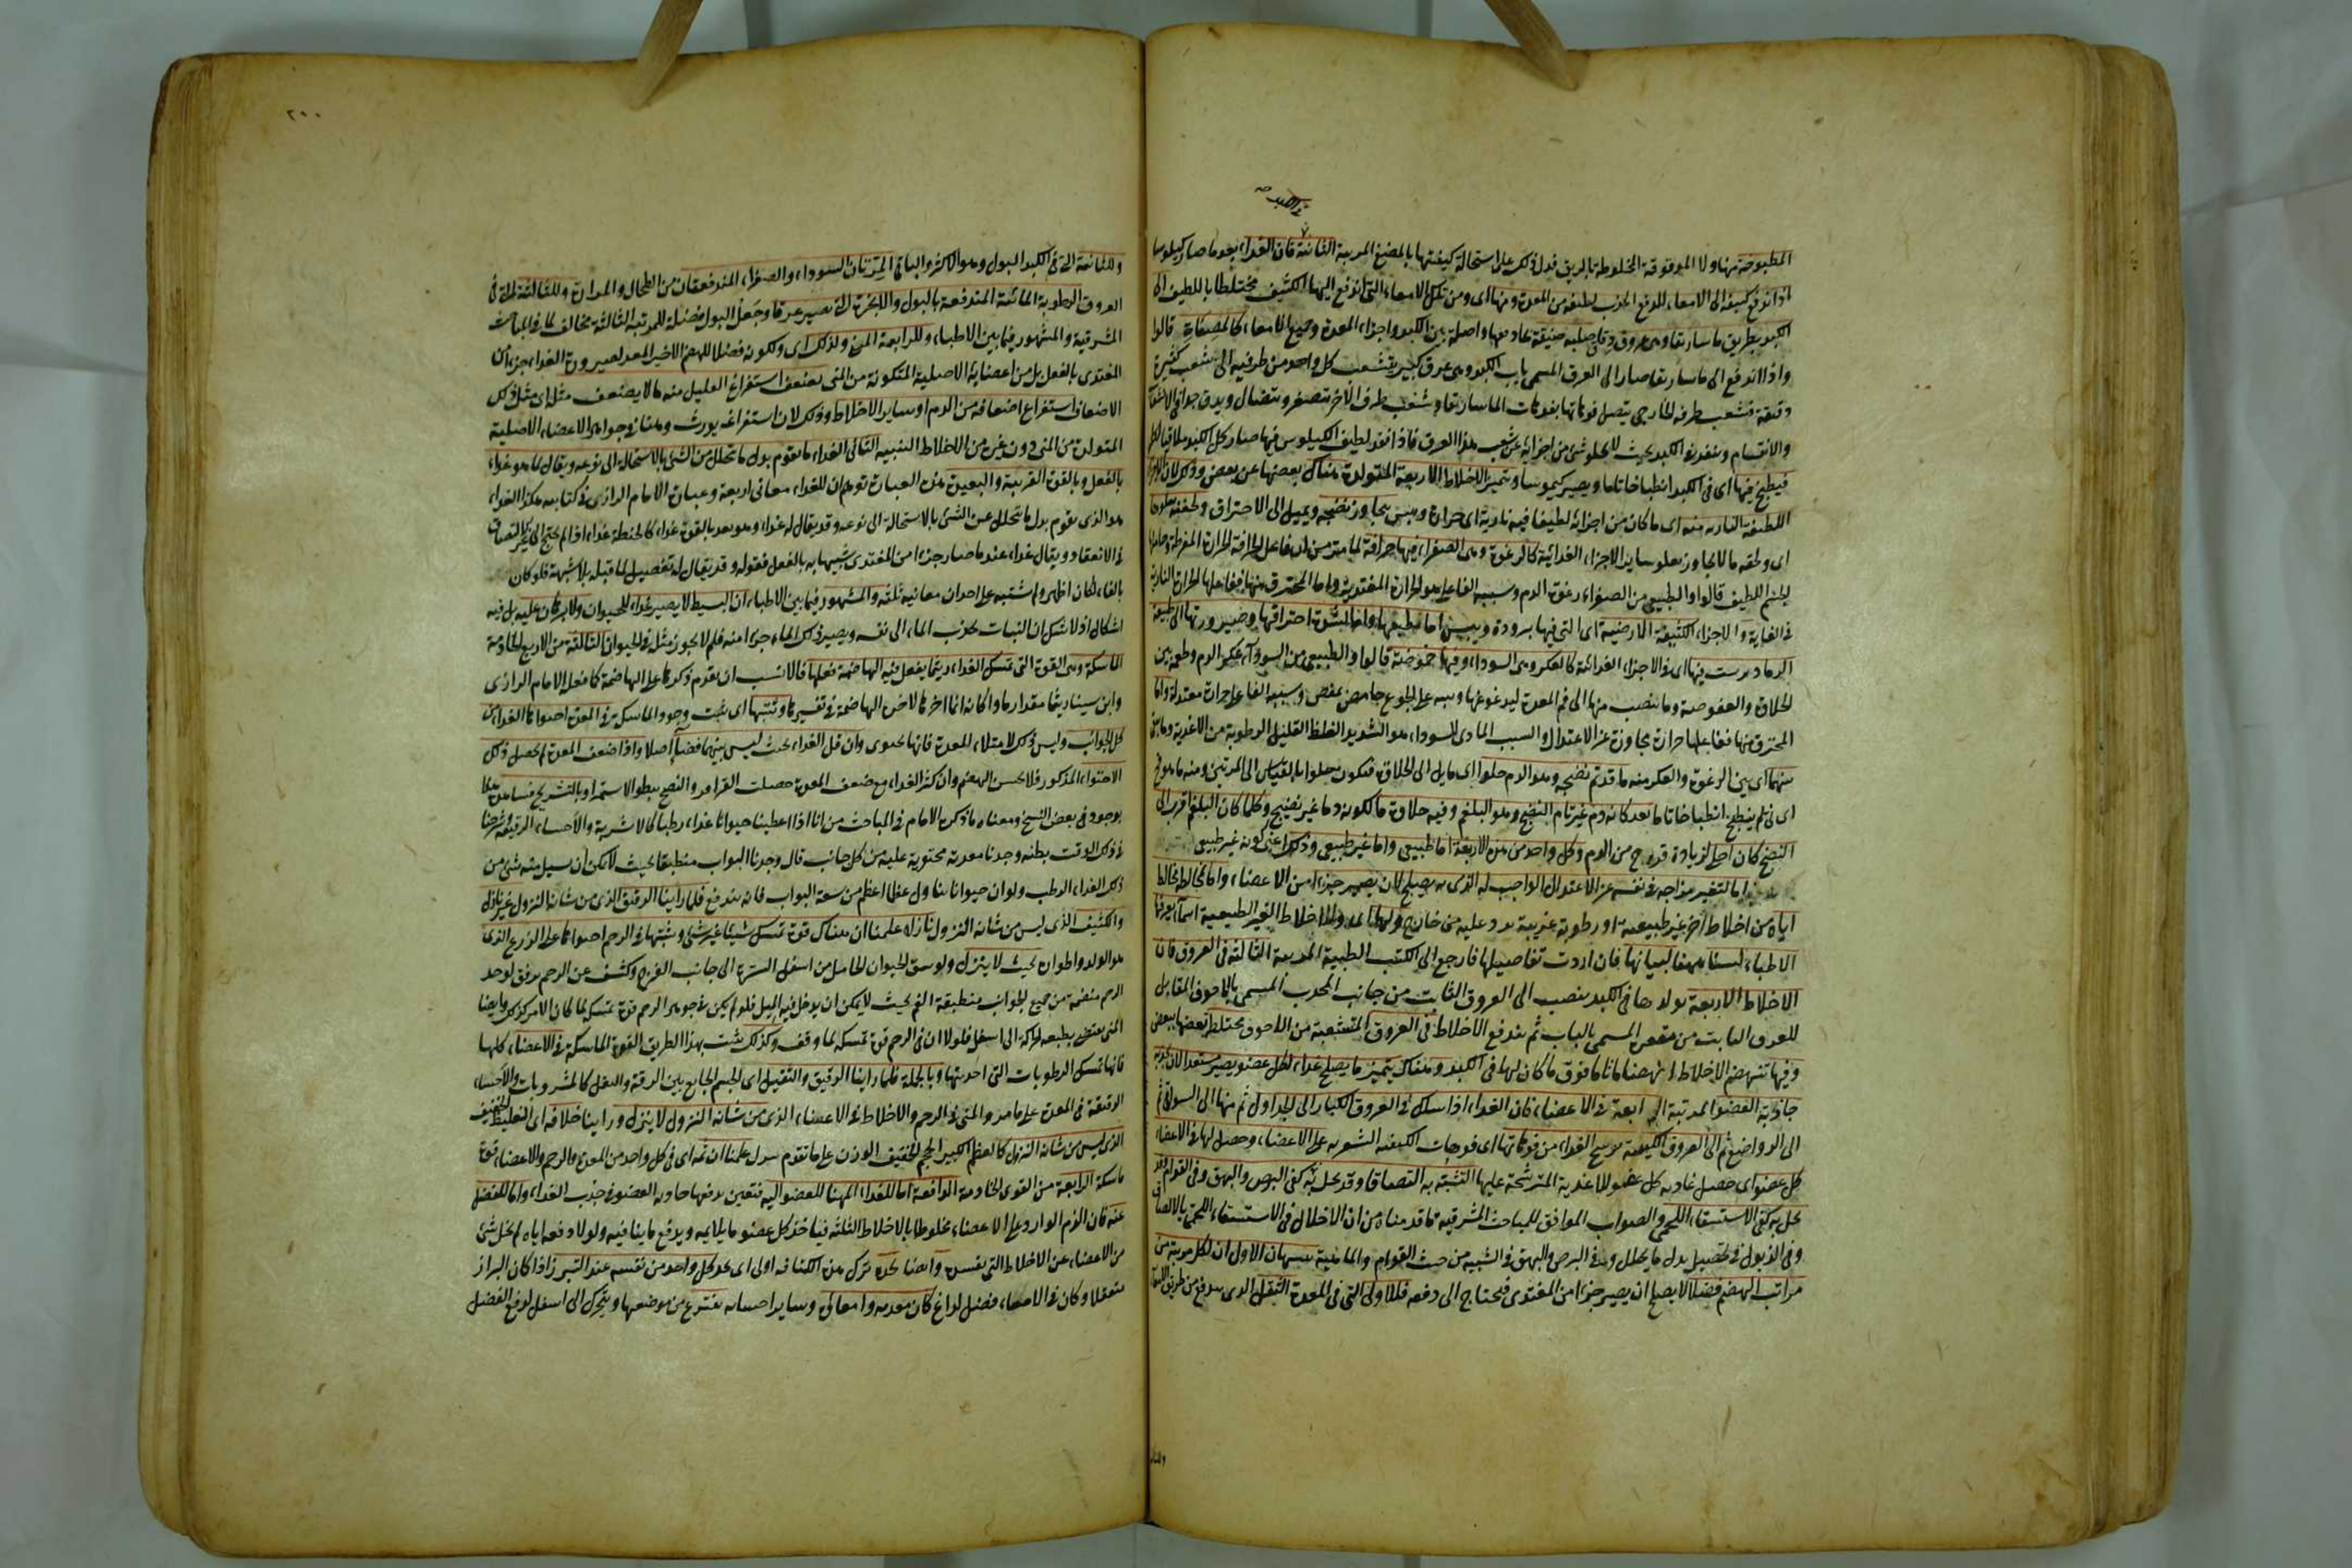 في الكبد صح
المطبوخة منها ولا المدقوقة المخلوطة بالريق فدل ذلك على استحالة كيفيتها بالمضغ المرتبة الثانية فان الغذاء بعد ما صار كيلوسا
اذا اندفع كثيفه الى الامعاء للدفع انجذب لطيفه من المعدة ومنها اى ومن تلك الامعاء التى اندفع اليها الكثيف مختلطا باللطيف الى
الكبد بطريق ماساريقا وهى عروق دقاق صلبة ضيقة واصلة بين الكبد واجزاء المعدة وجميع الامعاء كالمصفاة قالوا
واذا اندفع الى ماساريقا صار الى العرق المسمى باب الكبد وهو عرق كبير يتشعب كل واحد من طرفيه الى شعب كثيرة
دقيقة فتشعب طرفه الخارجى يتصل فوهاتها بفوهات الماساريقا وشعب طرفه الآخر تتصغر وتتضال ويدق
والانقسام وينفذ فى الكبد بحيث لا يخلو شئ من اجزائه عن شعب هذا العرق فاذا نفذ لطيف الكيلوس فيها صار كل الكبد ملاقيا لكله
فينطبخ فيها اى فى الكبد انطباخا تاما ويصير كيموسا وتتميز الاخلاط الاربعة المتولدة هناك بعضها عن بعض وذلك لان الاجزاء
اللطيفة النارية منه اى ما كان من اجزائه لطيفا فيه نارية اى حرارة ويبس يتجاوز نضجه ويميل الى الاحتراق ولخفته يعلو ما
اى ولخفة ما لا يتجاوز يعلو سائر الاجزاء الغذائية كالرغوة وهى الصفراء فيها حرافة لما مر من ان فاعل الحرافة الحرارة المفرطة
الجسم اللطيف قالوا والطبيعى من الصفراء رغوة الدم وسببه الفاعلى هو الحرارة المعتدلة واما المحترق منها ففاعلها الحرارة النارية
فى الغاية والاجزاء الكثيفة الارضية اى التى فيها برودة ويبس اما بطبعها واما لشدة احتراقها وصيرورتها الى طبيعة
الرماد يرسب فيها اى فى الاجزاء الغذائية كالعكر وهى السوداء وفيها حموضة قالوا والطبيعى من السوداء عكر الدم وطعمه بين
الحلاوة والعفوصة وما ينصب منها الى فم المعدة ليدغدغها وينبه على الجوع حامض عفص وسببه الفاعلى حرارة معتدلة واما
المحترق منها ففاعلها حرارة مجاوزة عن الاعتدال والسبب المادى للسوداء هو الشديد الغلظ القليل الرطوبة من الاغذية وما
بينهما اى بين الرغوة والعكر منه ما قد تم نضجه وهو الدم حلوا اى مايل الى الحلاوة فيكون حلوا بالقياس الى المرتين ومنه ما هو
اى نى لم ينطبخ انطباخا تاما بعد كانه دم غير تام النضج وهو البلغم وفيه حلاوة ما لكونه دما غير نضيج وكلما كان البلغم اقرب الى
النضج كان احلى لزيادة قربه من الدم وكل واحد من هذه الاربعة اما طبيعى واما غير طبيعى وذلك اعنى كونه غير طبيعى
اما لتغير مزاجه فى نفسه عن الاعتدال الواجب له الذى به يصلح لان يصير جزءا من الاعضاء واما لمخالطة مخالط
اياه من اخلاط اخر غير طبيعية او رطوبة غريبة ترد عليه من خارج ولها اى ولهذه الاخلاط الغير الطبيعية اسماء يعرفها
الاطباء لسنا ههنا لبيانها فان اردت تفاصيلها فارجع الى الكتب الطبية المرتبة الثالثة فى العروق فان
الاخلاط الاربعة بولدها فى الكبد ينصب الى العروق النابت من جانب المحدب المسمى بالاجوف المقابل
للعرق النابت من مقعره المسمى بالباب ثم يندفع الاخلاط فى العروق المتشعبة من الاجوف مختلط بعضها ببعض
وفيها تنهضم الاخلاط انهضاما تاما فوق ما كان لها فى الكبد وهناك يتميز ما يصلح غذاء لكل عضو ويصير مستعدا لان تجذبه
جاذبة العضو المرتبة الرابعة فى الاعضاء فان الغذاء اذا سلك فى العروق الكبار الى الجداول ثم منها الى السواقى ثم
الى الرواضع ثم الى العروق الليفية يرشح الغذاء من فوهاتها اى فوهات الليفية الشعرية على الاعضاء وحصل لها فى الاعضاء
كل عضو اى حصل غاذية كل عضو للاغذية المترشحة عليها التشبه به التصاقا وقد يخل به كفى البرص والبهق وفى القوام
يخل به كفى الاستسقاء اللحمى والصواب الموافق للمباحث المشرقية ما قدمناه من ان الاخلال فى الاستسقاء اللحمى بالالصاق
وفى الذبول فى تحصيل بدل ما يتحلل وفى البرص والبهق فى الشبيه من حيث القوام والماهية تنبيهان الاول ان لكل مرتبة من
مراتب الهضم فضلا لا يصلح ان يصير جزءا من المغتذى فيحتاج الى دفعه فللاولى التى فى المعدة الثقل الذى يندفع من طريق الامعاء
٢٠٠
وللثانية التى فى الكبد البول وهو الاكثر والباقى المرتان السوداء والصفراء المندفعتان من الطحال والمرارة وللثالثة التى فى
العروق الرطوبة المائية المندفعة بالبول والابخرة التى تصير عرقا وجعل البول فضلة للمرتبة الثالثة مخالف لما فى المباحث
المشرقية والمشهور فيما بين الاطباء وللرابعة المنى ولذلك اى ولكونه فضلا للهضم الاخير المعد لصيرورة الغذاء جزءا من
المغتذى بالفعل بل من اعضائه الاصلية المتكونة من المنى يضعف استفراغ القليل منه ما لا يضعف مثله اى مثل ذلك
الاضعاف استفراغ اضعافه من الدم او سائر الاخلاط وذلك لان استفراغه يورث وهنا فى جواهر الاعضاء الاصلية
المتولدة من المنى دون غيره من الاخلاط التنبيه الثانى الغذاء ما يقوم بدل ما يتحلل من الشئ بالاستحالة الى نوعه ويقال لما هو غذاء
بالفعل وبالقوة القريبة والبعيدة هذه العبارة توهم ان للغذاء معانى اربعة وعبارة الامام الرازى فى كتابيه هكذا الغذاء
هو الذى يقوم بدل ما يتحلل عن الشئ بالاستحالة الى نوعه وقد يقال له غذاء وهو بعد بالقوة غذاء كالحنطة غذاء اذا لم يحتج الى غير الالتصاق
فى الانعقاد ويقال غذاء عندما صار جزءا من المغتذى شبيها به بالفعل فقوله وقد يقال له تفصيل لما قبله بلا شبهة فلو كان
بالفاء لكان اظهر ولم اشتبه على احد ان معانيه ثلثة والمشهور فيما بين الاطباء ان البسيط لا يصير غذاء للحيوان ولا برهان عليه بل فيه
اشكال اذ لا شك ان النبات يجذب الماء الى نفسه ويصير ذلك الماء جزءا منه فلم لا يجوز مثله فى الحيوان الثالثة من الاربع الخادمة
الماسكة وهى القوة التى تمسك الغذاء ريثما يفعل فيه الهاضمة فعلها فالانسب ان يقدم ذكرها على الهاضمة كما فعله الامام الرازى
وابن سينا ريثما مقدار ما وا كانه انما اخرها لاخذ الهاضمة فى تفسيرها وتثبتها اى يثبت وجود الماسكة فى المعدة احتواها الغذاء من
كل الجوانب وليس ذلك لامتلاء المعدة فانها تحتوى وان قل الغذاء بحيث ليس بينهما فضاء اصلا واذا ضعف المعدة لم يحصل ذلك
الاحتواء المذكور فلا يحسن الهضم وان كثر الغذاء مع ضعف المعدة حصلت القراقر والنفخ ببطو الاستمراء وبالتشريح
يوجد فى بعض النسخ ومعناه ما ذكره الامام فى المباحث من انا اذا اعطينا حيوانا غذاء رطبا كالاشربة والاحساء الرقيقة وشرحنا
فى ذلك الوقت بطنه وجدنا معدته محتوية عليه من كل جانب قال وجدنا البواب منطبقا بحيث لا يمكن ان يسيل منه شئ من
ذلك الغذاء الرطب ولو ان حيوانا تناول عظما اعظم من سعة البواب فانه يندفع فلما راينا الرقيق الذى من شانه النزول غير نازل
والكثيف الذى ليس من شانه النزول نازلا علمنا ان هناك قوة تمسك شيئا غير شئ وتثبتها فى الرحم احتواها على الزرع الذى
هو الولد واطواره بحيث لا ينزل ولو شق الحيوان الحامل من اسفل السرة الى جانب الفرج وكشف عن الرحم برفق لوجد
الرحم منضمة من جميع الجوانب منطبقة الفم بحيث لا يمكن ان يدخل فيه الميل فلو لم يكن فى جوهر الرحم قوة تمسكه لما كان الامر كذلك وايضا
المنى يقتضى بطبعه الحركة الى اسفل فلولا ان فى الرحم قوة تمسكه لما وقف وكذلك يثبت بهذا الطريق القوة الماسكة فى الاعضاء كلها
فانها تمسك الرطوبات التى احدثتها وبالجملة فلما راينا الرقيق والثقيل اى الجسم الجامع بين الرقة والثقل كالمشروبات والاحساء
الرقيقة فى المعدة على ما مر والمنى فى الرحم والاخلاط فى الاعضاء الذى من شانه النزول لا ينزل وراينا خلافه اى الغليظ الخفيف
الذى ليس من شانه النزول كالعظم الكبير الحجم الخفيف الوزن على ما تقدم ينزل علمنا ان ثمه اى فى كل واحد من المعدة والرحم والاعضاء قوة
ماسكة الرابعة من القوى الخادمة الدافعة اما للغذاء المهيا للعضو اليه فتعين بدفعها جاذبة العضو فى جذب الغذاء واما للفضل
عنه فان الدم الوارد على الاعضاء مخلوط بالاخلاط الثلثة فياخذ كل عضو ما يلايمه ويدفع ما ينافيه ولولا دفعه اياه لم يخل شئ
من الاعضاء عن الاخلاط التى تفسده وايضا تجده ترك هذه الكتابة اولى اى يجد كل واحد من نفسه عند التبرز اذا كان البراز
متعقلا وكان فى الامعاء فضل لداغ كان معدته وامعائه وسائر احشائه تنتزع من موضعها ويتحرك الى اسفل لدفع الفضل